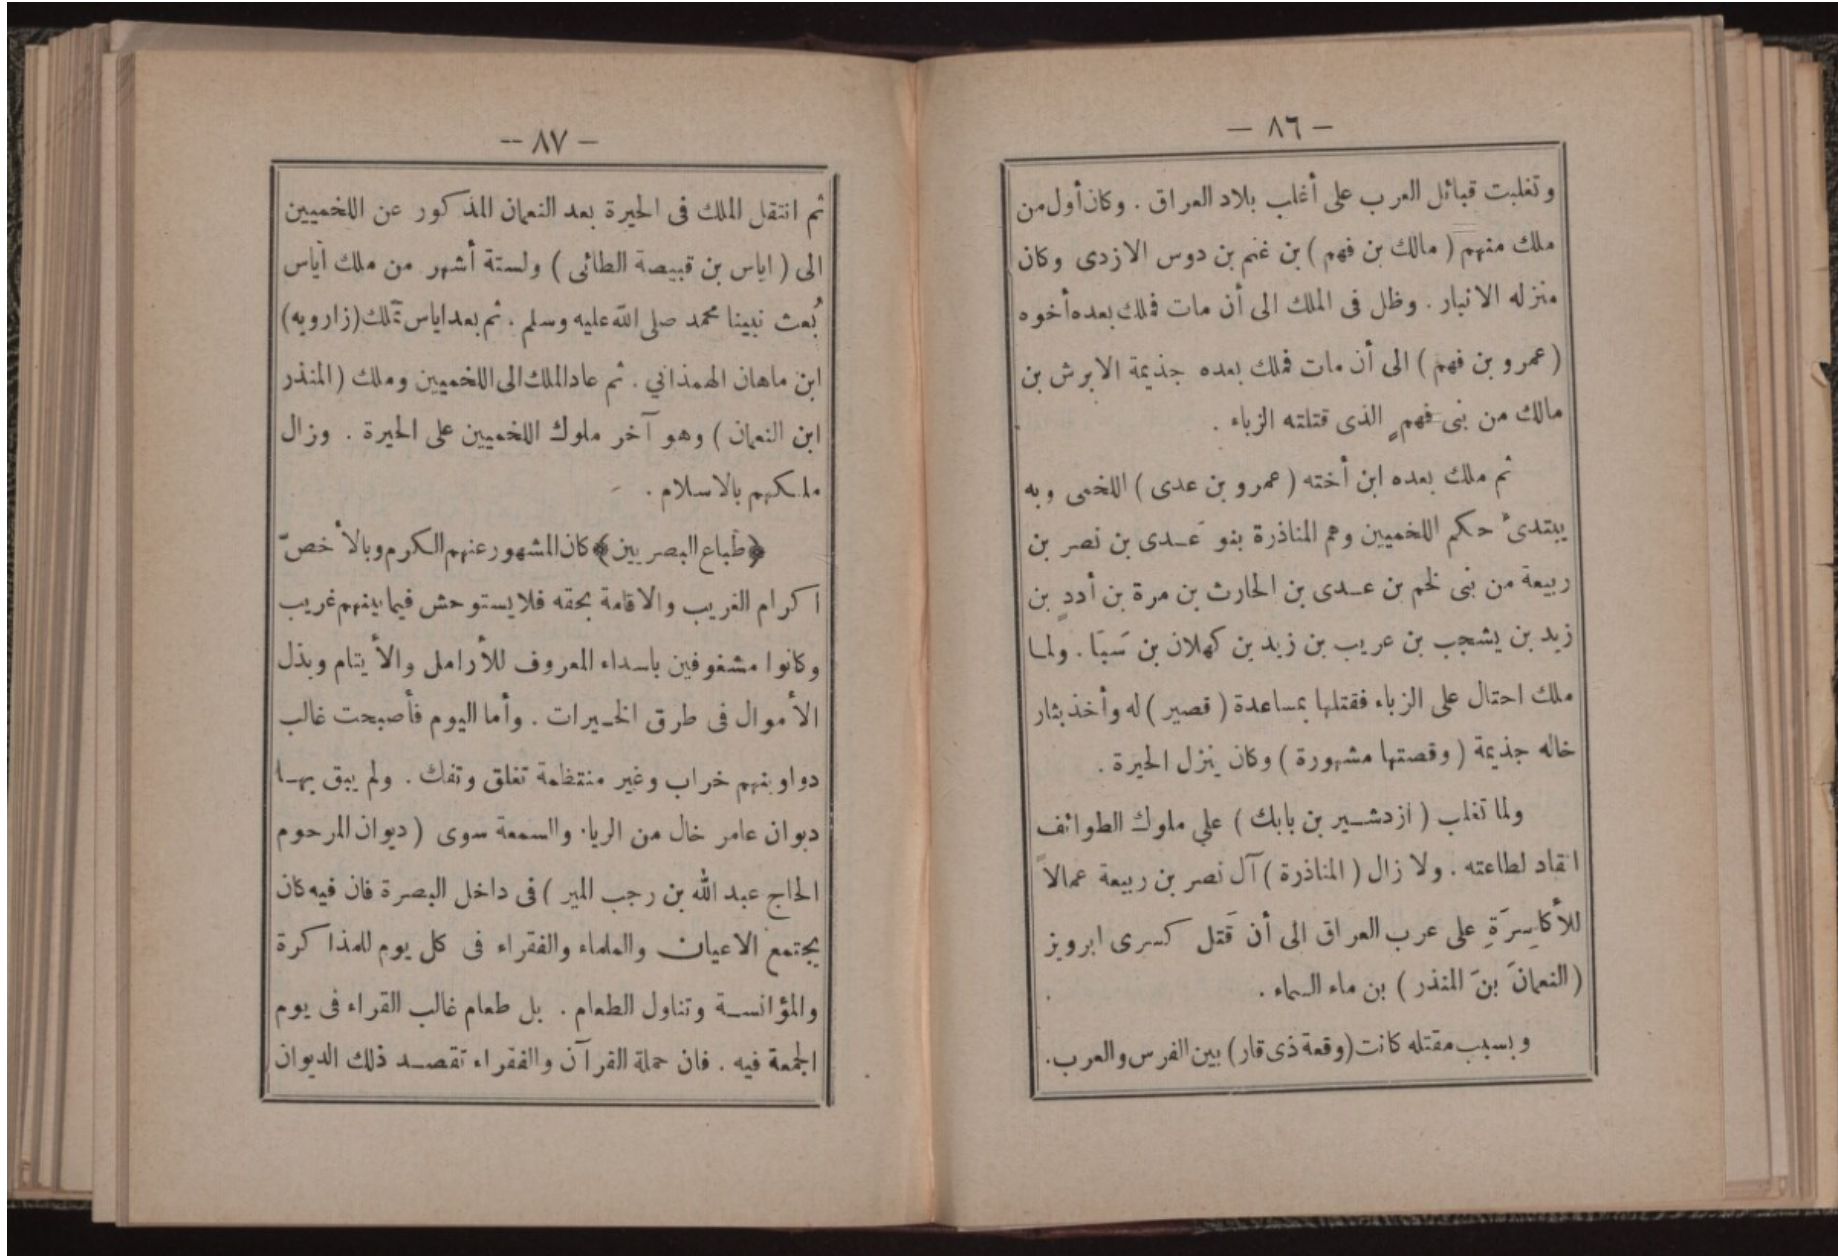 — ٨٦ —
وتغلبت قبائل العرب على أغلب بلاد العراق . وكان أول من
ملك منهم ( مالك بن فهم ) بن غنم بن دوس الازدى وكان
منزله الانبار . وظل فى الملك الى أن مات فملك بعده أخوه
( عمرو بن فهم ) الى أن مات فملك بعده جذيمة الابرش بن
مالك من بنى فهمٍ الذى قتلته الزباء .
ثم ملك بعده ابن أخته ( عمرو بن عدى ) اللخمى وبه
يبتدئ حكم اللخميين وهم المناذرة بنو عدى بن نصر بن
ربيعة من بنى لخم بن عدى بن الحارث بن مرة بن أددٍ بن
زيد بن يشجب بن عريب بن زيد بن كهلان بن سَبَا . ولما
ملك احتال على الزباء فقتلها بمساعدة ( قصير ) له وأخذ بثار
خاله جذيمة ( وقصتها مشهورة ) وكان ينزل الحيرة .
ولما تغلب ( ازدشير بن بابك ) علي ملوك الطوائف
انقاد لطاعته . ولا زال ( المناذرة ) آل نصر بن ربيعة عمالاً
للأكاسِرَةِ على عرب العراق الى أن قَتل كسرى ابرويز
( النعمانَ بنَ المنذر ) بن ماء السماء .
وبسبب مقتله كانت ( وقعة ذى قار ) بين الفرس والعرب .
— ٨٧ --
ثم انتقل الملك فى الحيرة بعد النعمان المذكور عن اللخميين
الى ( اياس بن قبيصة الطائى ) ولستة أشهر من ملك أياس
بُعث نبينا محمد صلى الله عليه وسلم . ثم بعد اياس تملك ( زارويه )
ابن ماهان الهمذاني . ثم عاد الملك الى اللخميين وملك ( المنذر
ابن النعمان ) وهو آخر ملوك اللخميين على الحيرة . وزال
ملكهم بالاسلام .
﴿ طباع البصريين ﴾ كان المشهور عنهم الكرم وبالأخصّ
اكرام الغريب والاقامة بحقه فلا يستوحش فيما بينهم غريب
وكانوا مشغوفين باسداء المعروف للأرامل والأيتام وبذل
الأموال فى طرق الخيرات . وأما اليوم فأصبحت غالب
دواوينهم خراب وغير منتظمة تغلق وتفك . ولم يبق بها
ديوان عامر خال من الرياء والسمعة سوى ( ديوان المرحوم
الحاج عبد الله بن رجب المير ) فى داخل البصرة فان فيه كان
يجتمع الاعيان والعلماء والفقراء فى كل يوم للمذاكرة
والمؤانسة وتناول الطعام . بل طعام غالب القراء فى يوم
الجمعة فيه . فان حملة القرآن والفقراء تقصد ذلك الديوان